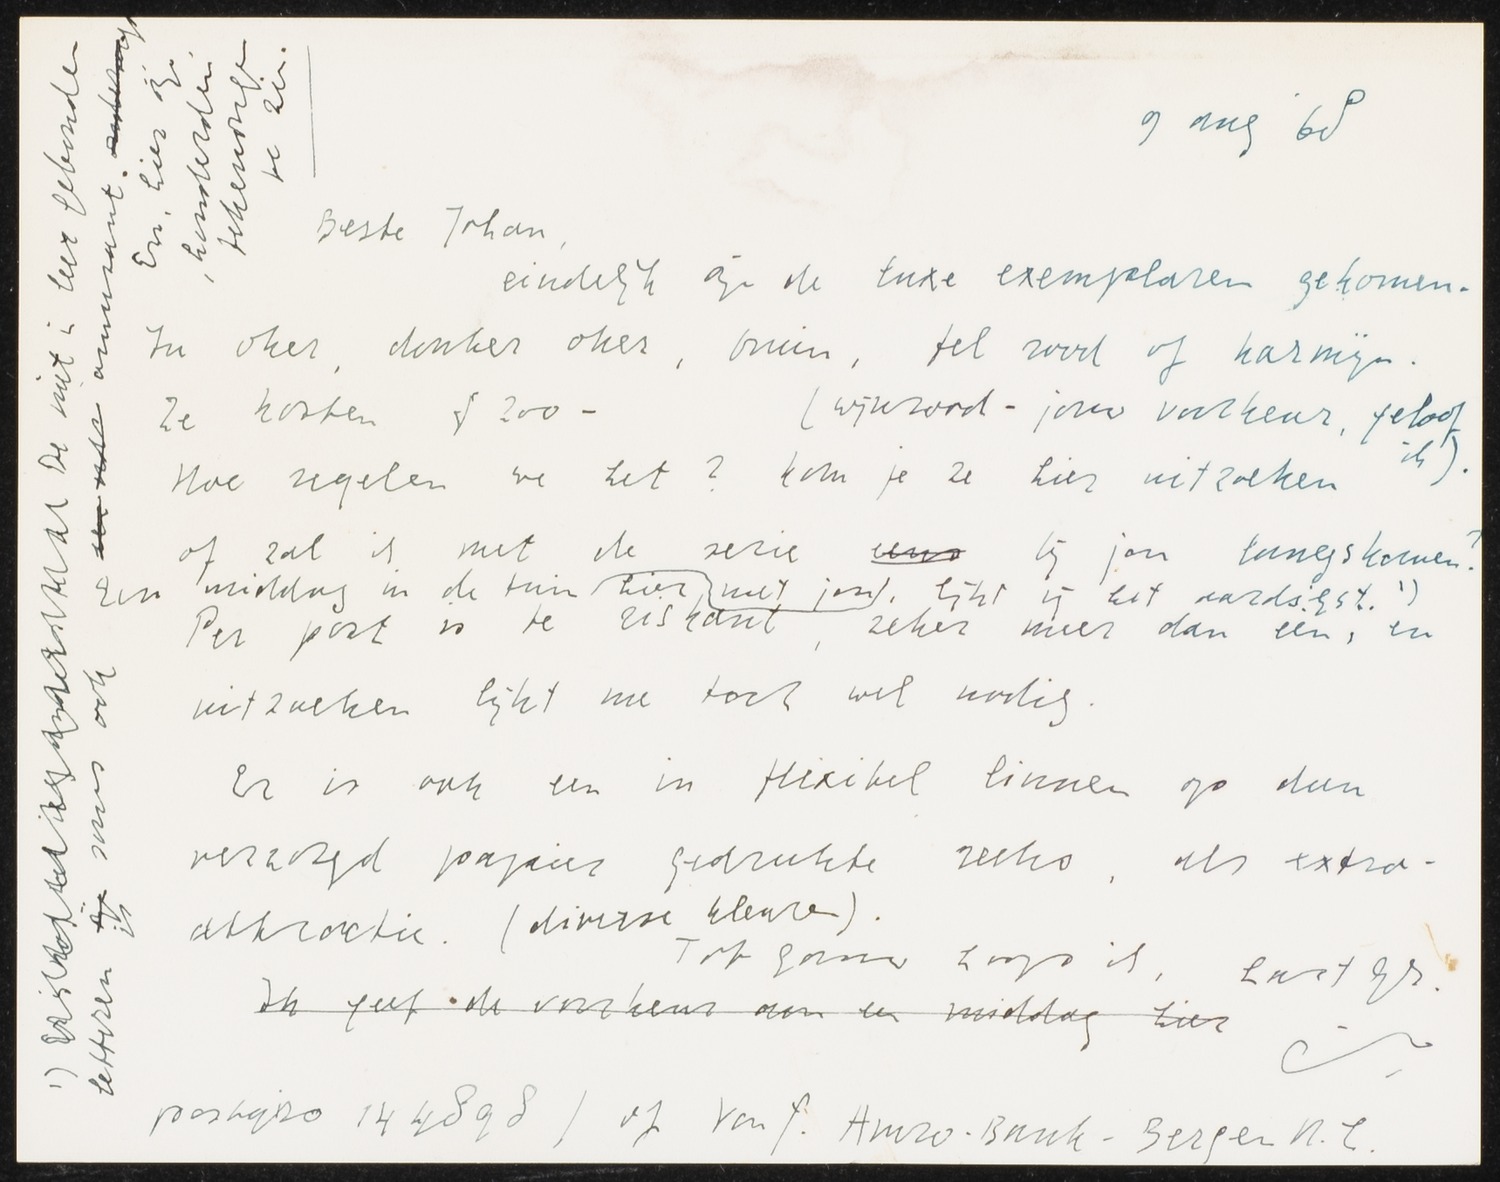 9 aug '68
Beste Johan,
eindelijk zijn de luxe exemplaren gekomen.
In oker, donker oker, bruin, fel rood of karmijn.
Ze kosten f 200 - (wijnrood - jouw voorkeur, geloof ik).
Hoe regelen we het? kom je ze hier uitzoeken
of zal ik met de serie eens bij jou langskomen?
Een middag in de tuin hier, met jou, lijkt mij het aardigst. 1)
Per post is te riskant, zeker meer dan één, en
uitzoeken lijkt me toch wel nodig.
Er is ook een in flexibel linnen op dun
verzorgd papier gedrukte reeks, als extra-
attractie. (diverse kleuren).
Tot gauw hoop ik, hart. gr.
Ik geef de voorkeur aan een middag hier
postgiro 144898 / of van f. Amro-Bank - Bergen N.H.
1)
De niet in leer gebonden
letteren zijn is soms ook amusant.
En, hier zijn
honderden
tekeningen
te zien.